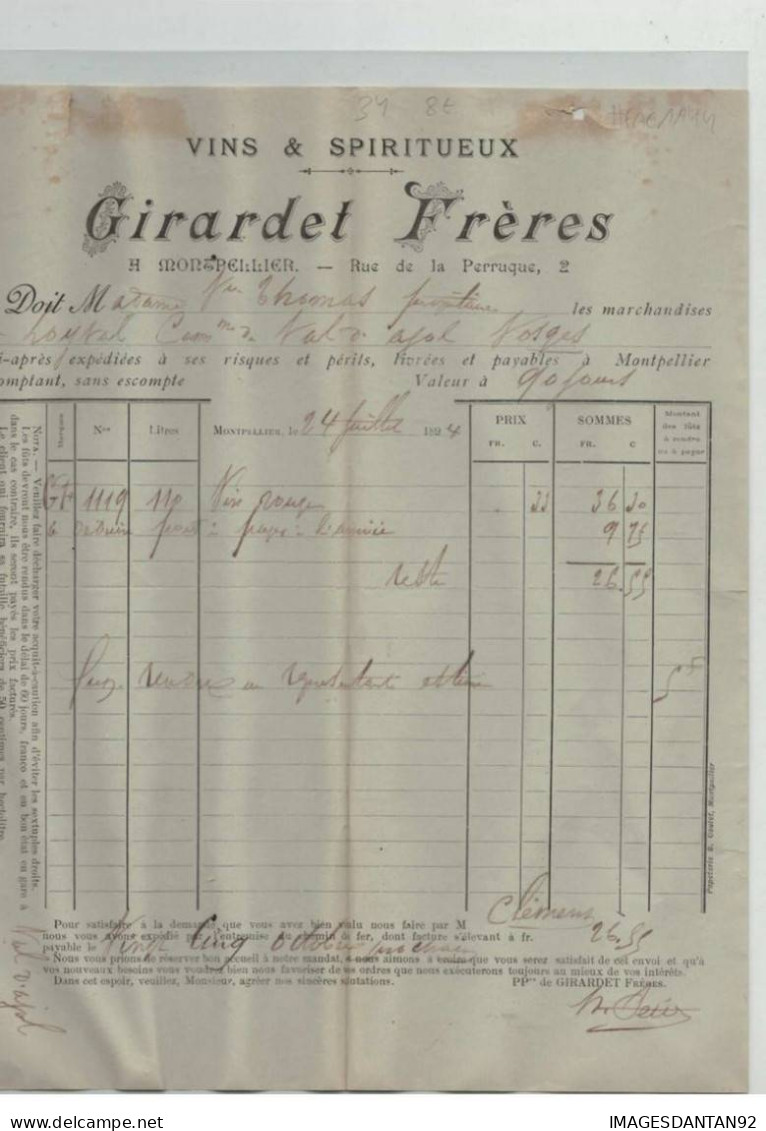 34 8E
VINS & SPIRITUEUX
Girardet Frères
A MONTPELLIER. — Rue de la Perruque, 2
Doit Madame Vve Thomas les marchandises
Comne de Val d'ajol Vosges
i-après expédiées à ses risques et périls, livrées et payables à Montpellier
omptant, sans escompte Valeur à 90 jours
Marques Nos Litres MONTPELLIER, le 24 juillet 1894 PRIX FR. C. SOMMES FR. C Montant des fûts à rendre ou à payer
GF 1119 110 Vin rouge 33 36 30
à déduire port à payer à l'arrivée 9 75
reste 26.55
représentant
NOTA. — Veuillez faire décharger votre acquit-à-caution afin d'éviter les sextuples droits.
Les fûts devront nous être rendus dans le délai de 60 jours, franco et en bon état en gare à
dans le cas contraire, ils seront payés les prix facturés.
Le client qui fournira sa futaille bénéficiera de 50 centimes par hectolitre.
Papeterie G. Montpellier
Pour satisfaire à la demande que vous avez bien valu nous faire par M Clémens
nous vous avons expédié par l'entremise du chemin de fer, dont facture s'élevant à fr. 26,55
payable le Vingt Cinq Octobre prochain
Nous vous prions de réserver bon accueil à notre mandat, nous aimons à croire que vous serez satisfait de cet envoi et qu'à
vos nouveaux besoins vous voudrez bien nous favoriser de vos ordres que nous exécuterons toujours au mieux de vos intérêts.
Dans cet espoir, veuillez, Monsieur, agréer nos sincères salutations. PPon de GIRARDET FRÈRES.
Val d'ajol
IMAGESDANTAN92